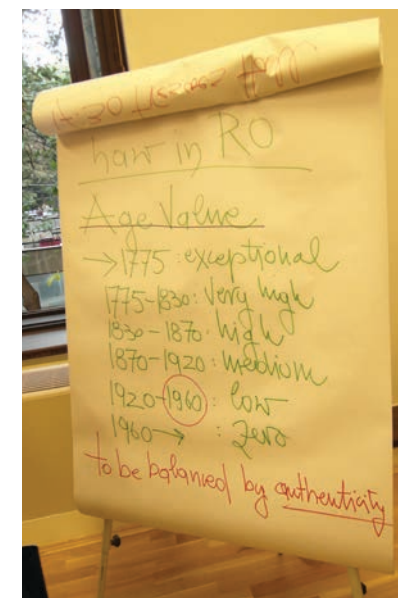 Law in RO
Age Value
→1775: exceptional
1775-1830: Very high
1830-1870: high
1870-1920: medium
1920-1960: low
1960→ : Zero
to be balanced by authenticity